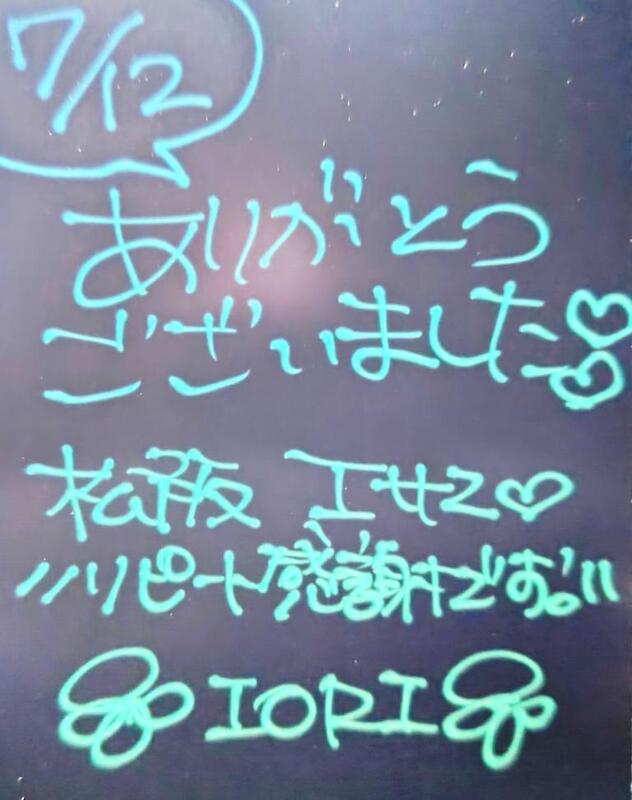 7/12
ありがとう
ございました♡♡
松阪 エサ2♡
〃リピート感謝です。〃
IORI